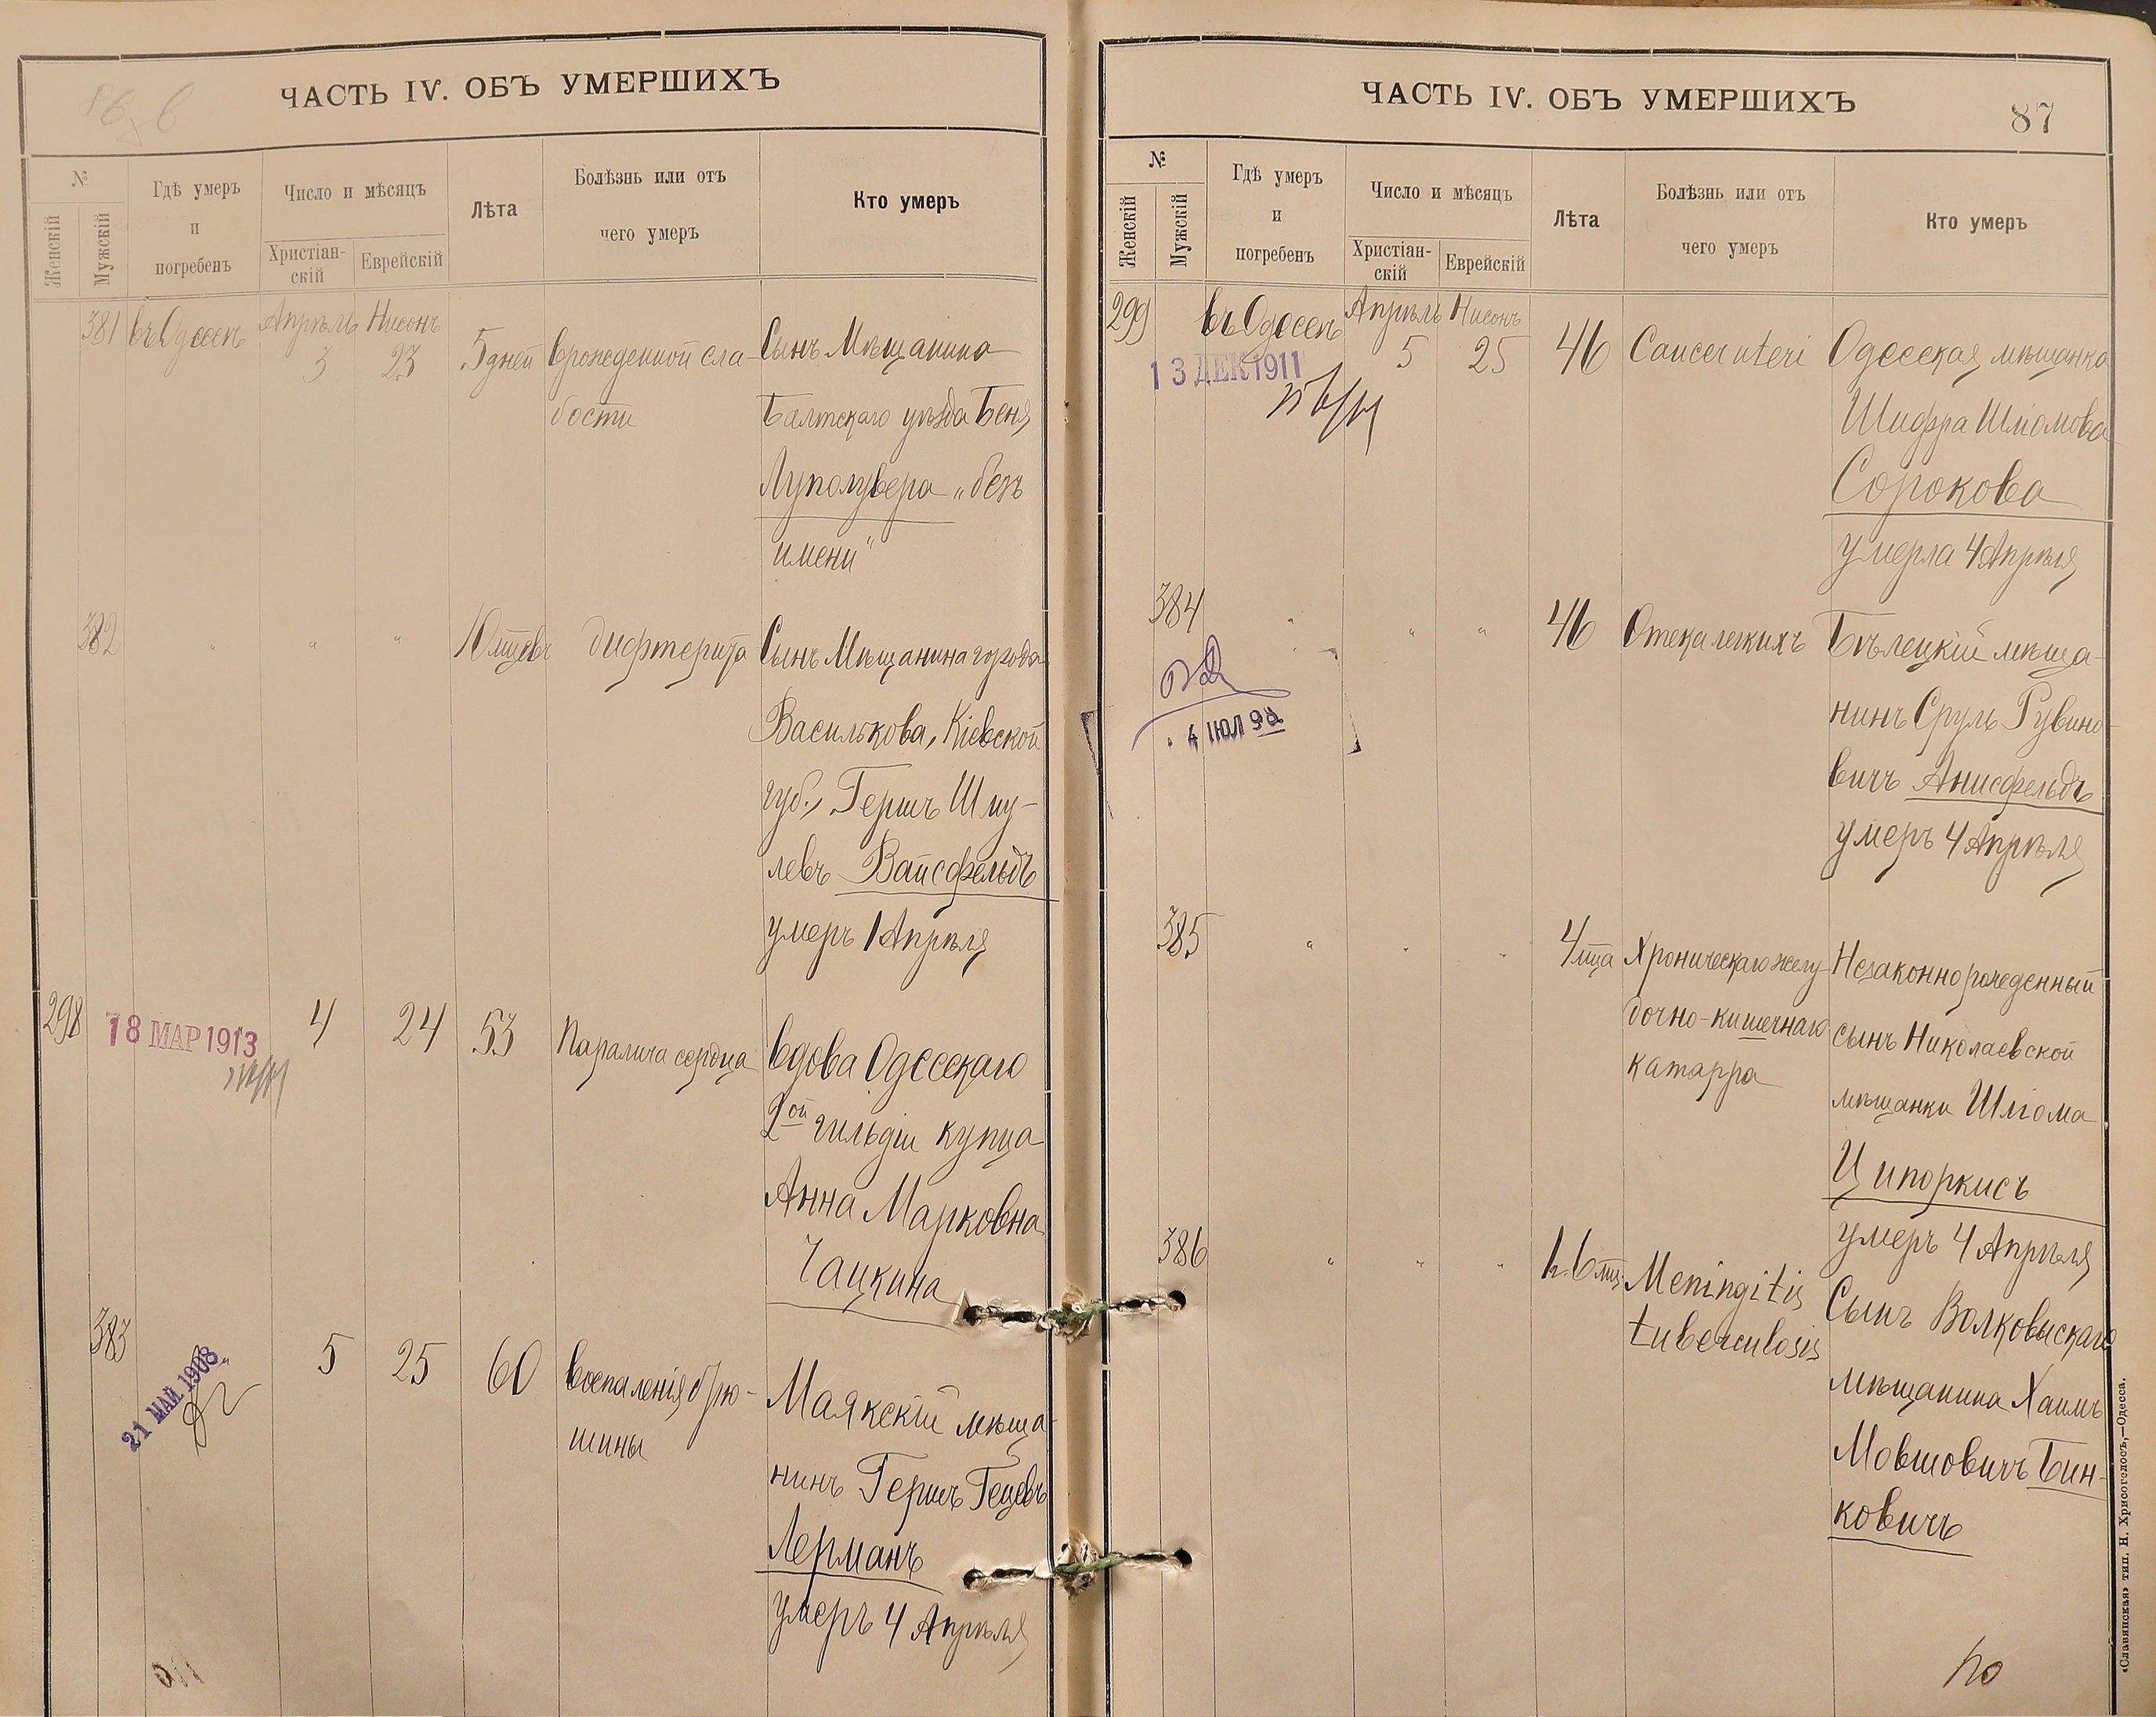 ЧАСТЬ IV. ОБЪ УМЕРШИХЪ
№
Женскій
Мужскій
Гдѣ умеръ
и
погребенъ
Число и мѣсяцъ
Христіан-
скій
Еврейскій
Лѣта
Болѣзнь или отъ
чего умеръ
Кто умеръ
381 въ Одессѣ Апрѣль 3 Нисонъ 23 5 дней врожденной сла-
бости
Сынъ Мѣщанина
Балтскаго уѣзда Беня
Луполувера „безъ
имени“
382 " " " 10 мцевъ дифтерита
Сынъ Мѣщанина города
Василькова, Кіевской
губ., Гершъ Шму-
левъ Вайсфельдъ
умеръ 1 Апрѣля
298 4 24 53 Паралича сердца
18 МАР 1913
вдова Одесскаго
2ой гильдіи купца
Анна Марковна
Чацкина
383 " 5 25 60 воспаленія брю-
шины
21 МАЙ 1908
Маякскій мѣща-
нинъ Гершъ Гецевъ
Лерманъ
умеръ 4 Апрѣля
ЧАСТЬ IV. ОБЪ УМЕРШИХЪ
87
№
Женскій
Мужскій
Гдѣ умеръ
и
погребенъ
Число и мѣсяцъ
Христіан-
скій
Еврейскій
Лѣта
Болѣзнь или отъ
чего умеръ
Кто умеръ
299 въ Одессѣ Апрѣль 5 Нисонъ 25 46 Cancer uteri
13 ДЕК 1911
Одесская мѣщанка
Шифра Шліомова
Сорокова
умерла 4 Апрѣля
384 " " " 46 Отека легкихъ
Бѣлецкій мѣща-
нинъ Сруль Рувино-
вичъ Анисфельдъ
умеръ 4 Апрѣля
385 " " " 4 мца Хроническаго желу-
дочно-кишечнаго
катарра
Незаконнорожденный
сынъ Николаевской
мѣщанки Шліома
Ципоркисъ
умеръ 4 Апрѣля
386 " " " 1 г. 6 мц. Meningitis
tuberculosis
Сынъ Волковыскаго
мѣщанина Хаимъ
Мовшовичъ Бин-
ковичъ
«Славянская» тип. Н. Хрисогелосъ,—Одесса.